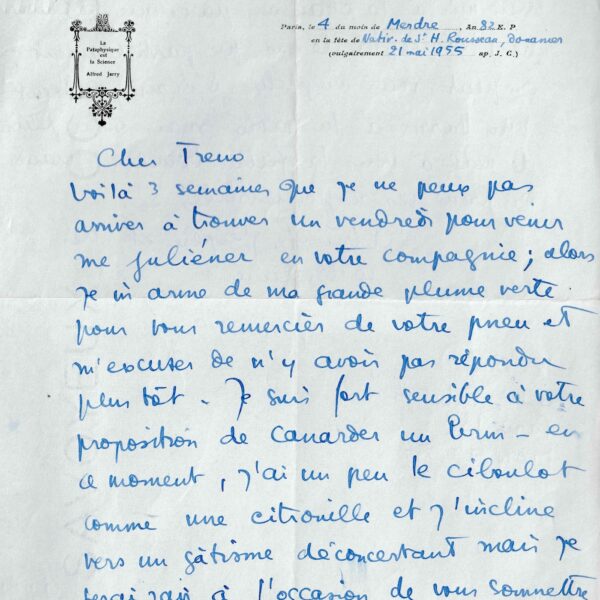 La
Pataphysique
est
la Science
Alfred Jarry
Paris, le 4 du mois de Merdre, An 82 E. P
en la fête de Nativ. de St H. Rousseau, douanier
(vulgairement 21 mai 1955 ap. J. C.)
Cher Treno
Voilà 3 semaines que je ne peux pas
arriver à trouver un vendredi pour venir
me juliéner en votre compagnie ; alors
je m'arme de ma grande plume verte
pour vous remercier de votre pneu et
m'excuser de n'y avoir pas répondu
plus tôt. Je suis fort sensible à votre
proposition de canarder un brin - en
ce moment, j'ai un peu le ciboulot
comme une citrouille et j'incline
vers un gâtisme déconcertant mais je
serai ravi à l'occasion de vous soumettre